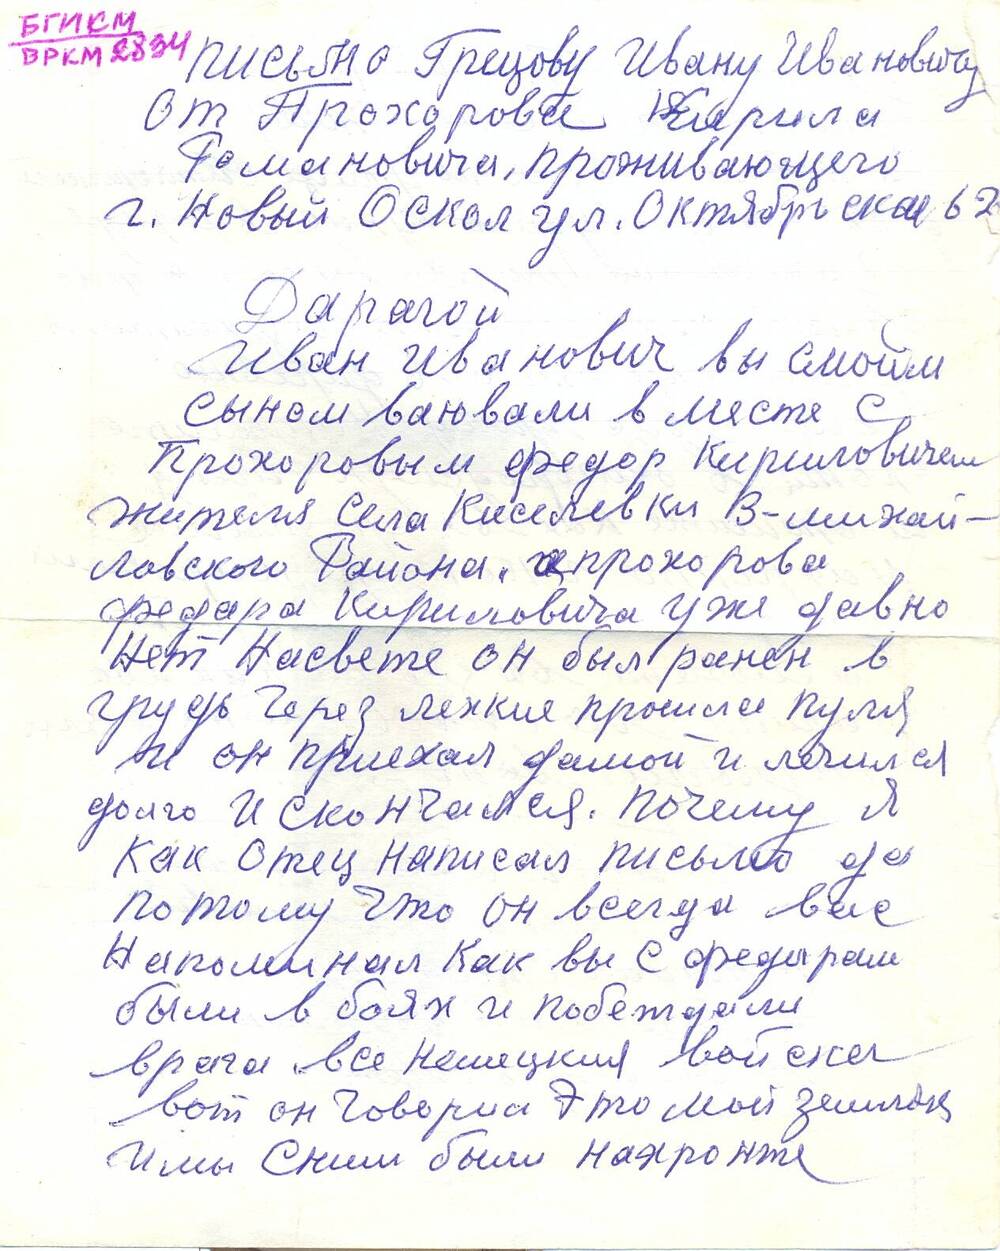 БГИКМ
ВРКМ 2834
письмо Грецову Ивану Ивановичу
от Прохорова Кирила
Романовича, проживающего
г. Новый Оскол ул. Октябрьская 62
Дарагой
Иван Иванович вы смоим
сыном ваювали в месте с
Прохоровым федор Кириловичем
жителя села Киселевки В-михай-
ловского Района, а прохорова
федара Кириловича уже давно
нет насвете он был ранен в
грудь через лехкие прошла пуля
и он приехал дамой и лечился
долго и скончался. почему я
как отец написал письмо да
потому что он всегда вас
напоминал как вы с федырам
были в боях и побеждали
врага все немецкия войска
вот он говорил Это мой земляк
и мы сним были нахронте